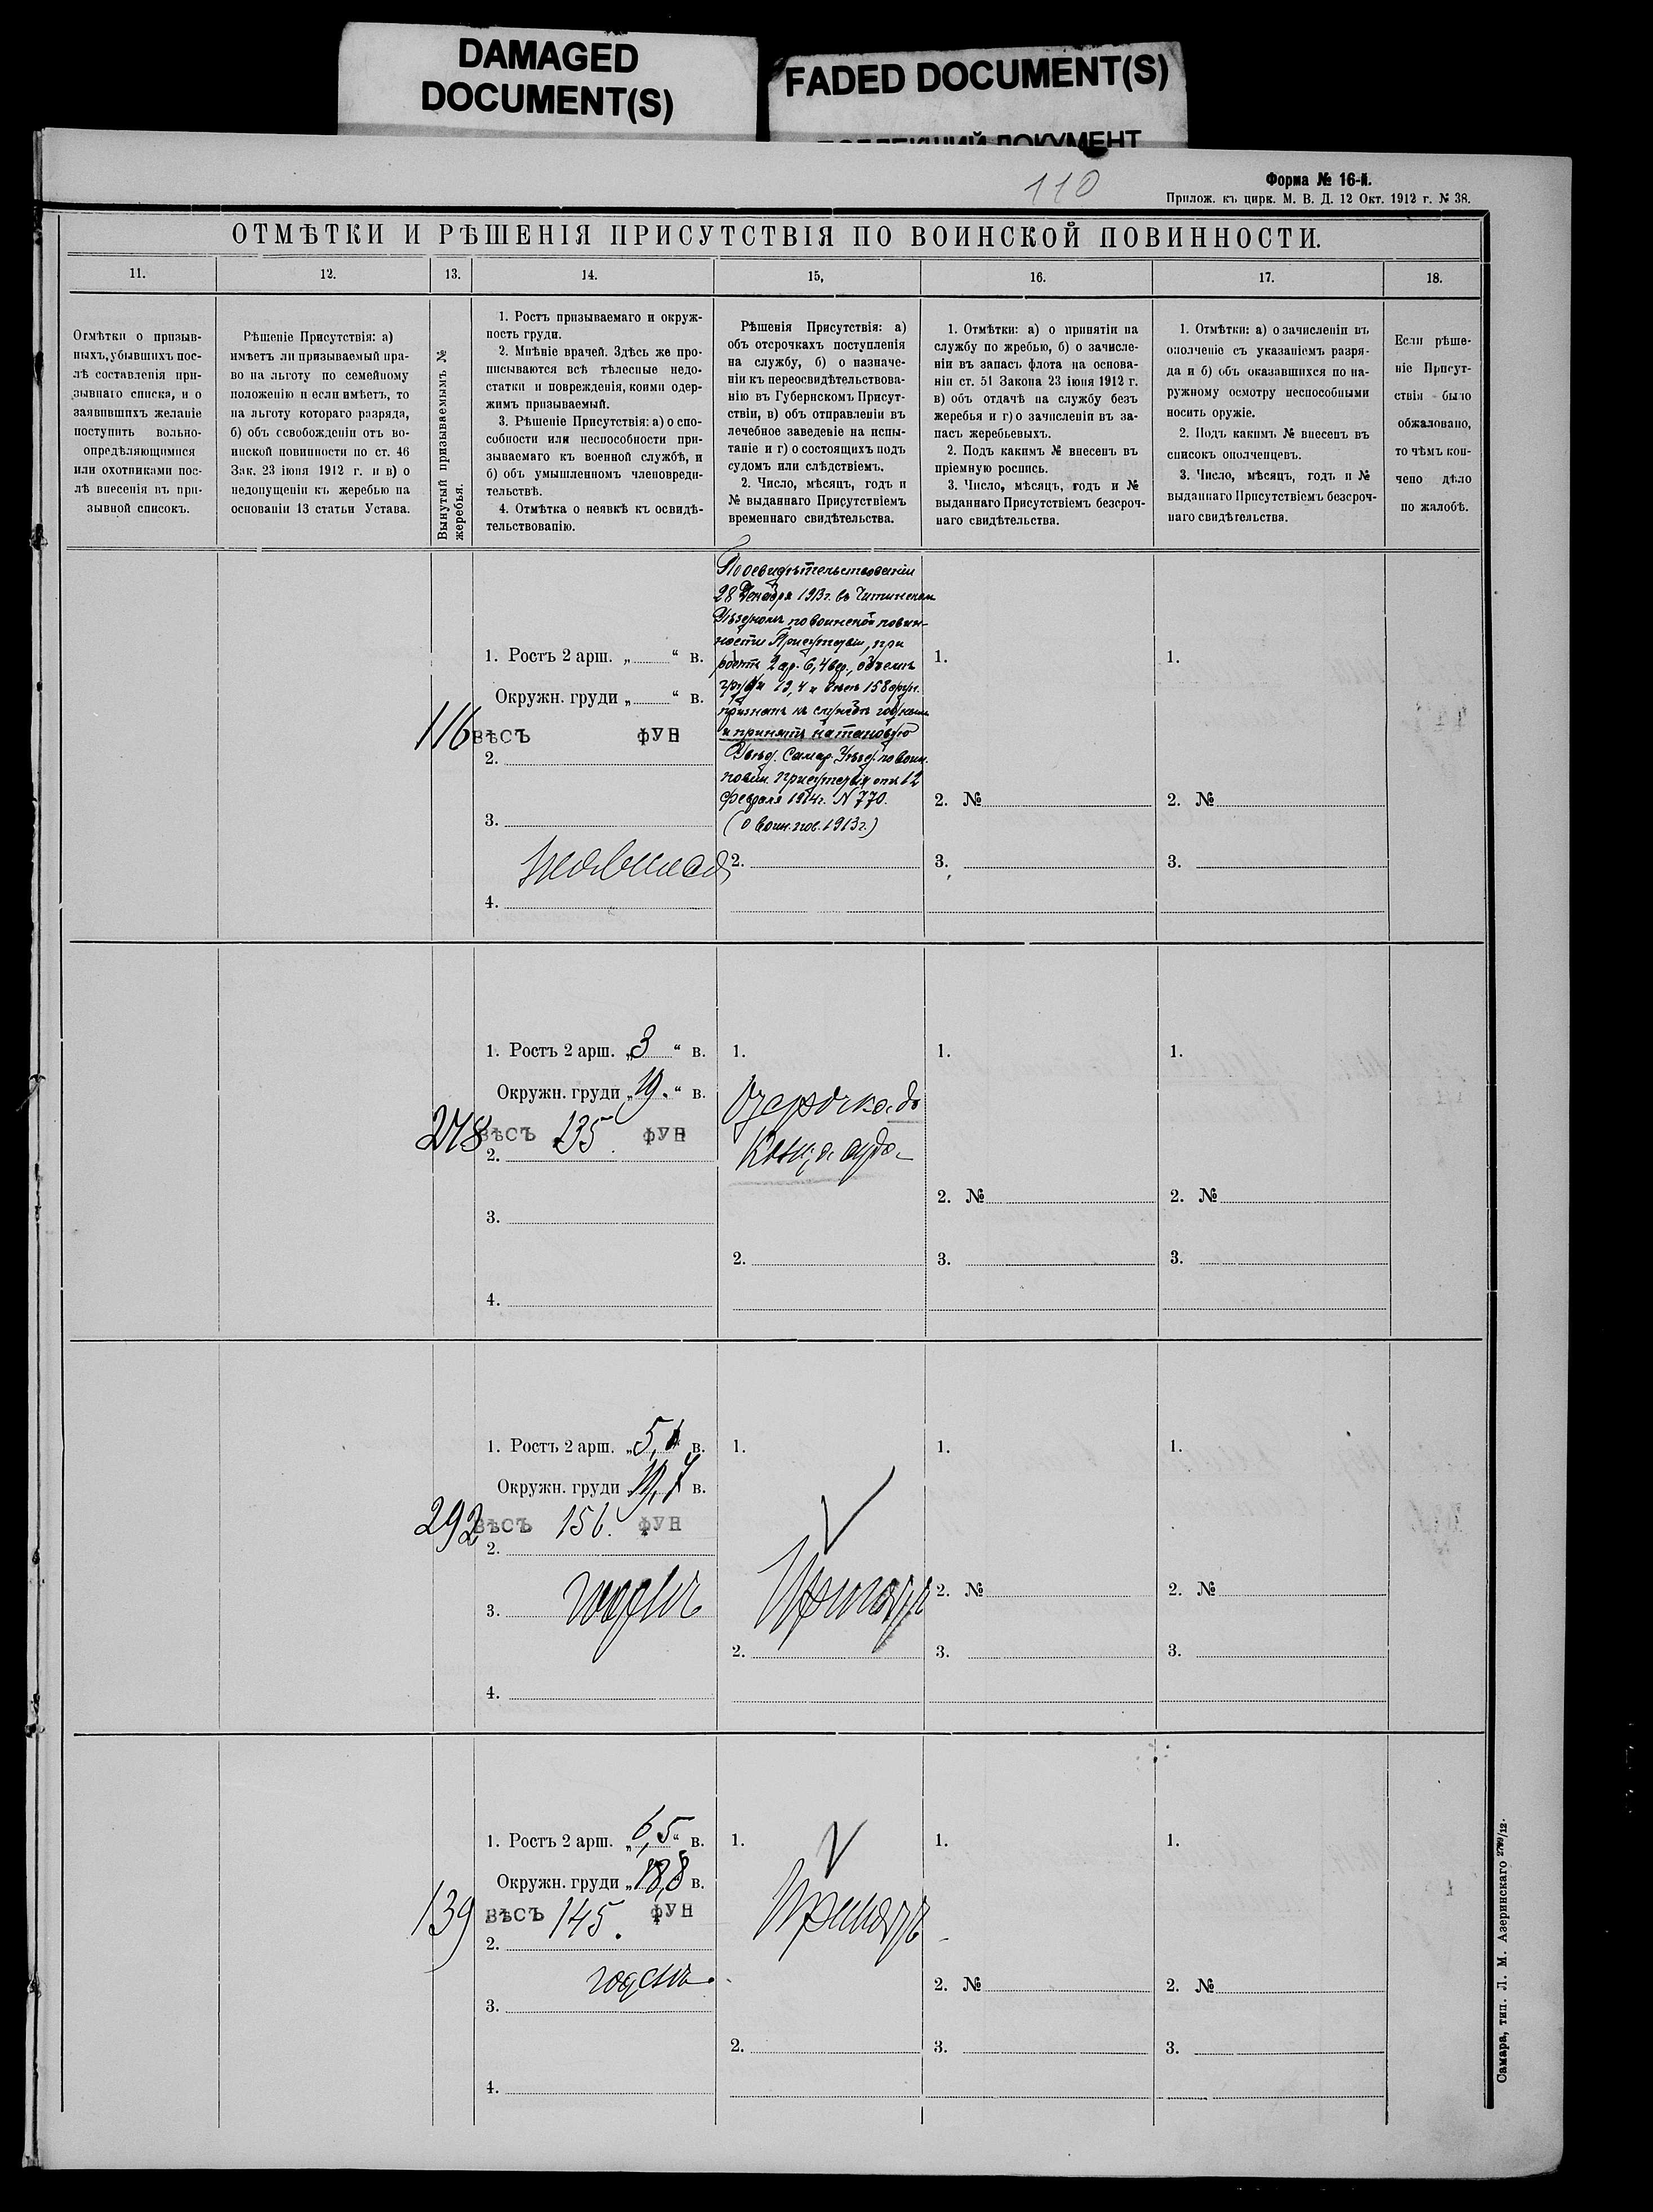 DAMAGED
DOCUMENT(S)
FADED DOCUMENT(S)
ДОКУМЕНТ
110
Форма № 16-й.
Прилож. къ цирк. М. В. Д. 12 Окт. 1912 г. № 38.
ОТМѢТКИ И РѢШЕНІЯ ПРИСУТСТВІЯ ПО ВОИНСКОЙ ПОВИННОСТИ.
11.
12.
13.
14.
15,
16.
17.
18.
Отмѣтки о призыв-
ныхъ, убывшихъ пос-
лѣ составленія при-
зывнаго списка, и о
заявившихъ желаніе
поступить вольно-
опредѣляющимися
или охотниками пос-
лѣ внесенія въ при-
зывной списокъ.
Рѣшеніе Присутствія: а)
имѣетъ ли призываемый пра-
во на льготу по семейному
положенію и если имѣетъ, то
на льготу котораго разряда,
б) объ освобожденіи отъ во-
инской повинности по ст. 46
Зак. 23 іюня 1912 г. и в) о
недопущеніи къ жеребью на
основаніи 13 статьи Устава.
Вынутый призываемымъ №
жеребья.
1. Ростъ призываемаго и окруж-
ность груди.
2. Мнѣніе врачей. Здѣсь же про-
писываются всѣ тѣлесные недо-
статки и поврежденія, коими одер-
жимъ призываемый.
3. Рѣшеніе Присутствія: а) о спо-
собности или неспособности при-
зываемаго къ военной службѣ, и
б) объ умышленномъ членовреди-
тельствѣ.
4. Отмѣтка о неявкѣ къ освидѣ-
тельствованію.
Рѣшенія Присутствія: а)
объ отсрочкахъ поступленія
на службу, б) о назначе-
ніи къ переосвидѣтельствова-
нію въ Губернскомъ Присут-
ствіи, в) объ отправленіи въ
лечебное заведеніе на испы-
таніе и г) о состоящихъ подъ
судомъ или слѣдствіемъ.
2. Число, мѣсяцъ, годъ и
№ выданнаго Присутствіемъ
временнаго свидѣтельства.
1. Отмѣтки: а) о принятіи на
службу по жребью, б) о зачисле-
ніи въ запасъ флота на основа-
ніи ст. 51 Закона 23 іюня 1912 г.
в) объ отдачѣ на службу безъ
жеребья и г) о зачисленіи въ за-
пасъ жеребьевыхъ.
2. Подъ какимъ № внесенъ въ
пріемную роспись.
3. Число, мѣсяцъ, годъ и №
выданнаго Присутствіемъ безсроч-
наго свидѣтельства.
1. Отмѣтки: а) о зачисленіи въ
ополченіе съ указаніемъ разря-
да и б) объ оказавшихся по на-
ружному осмотру неспособными
носить оружіе.
2. Подъ какимъ № внесенъ въ
списокъ ополченцевъ.
3. Число, мѣсяцъ, годъ и №
выданнаго Присутствіемъ безсроч-
наго свидѣтельства.
Если рѣше-
ніе Присут-
ствія было
обжаловано,
то чѣмъ кон-
чено дѣло
по жалобѣ.
116
1. Ростъ 2 арш. „ “ в.
Окружн. груди „ “ в.
вѣсъ фун
2.
3.
неявился
4.
По освидѣтельствованіи
28 Декабря 1913г. въ Читинском
Уѣздномъ по воинской повин-
ности Присутствіи, при
ростѣ 2 ар. 6,4 вер., объемѣ
груди 19,4 и вѣсѣ 158 фун.
признанъ къ службѣ годнымъ
и принятъ на таковую
Увѣд. Самар. Уѣзд. по воин.
повин. присутствія отъ 12
февраля 1914г. N 770.
(о воин. пов. 1913г.)
2.
1.
2. №
3.
1.
2. №
3.
278
1. Ростъ 2 арш. „3 “ в.
Окружн. груди „19. “ в.
вѣсъ 135. фун
2.
3.
4.
1.
Отсрочка до
конца суда
2.
1.
2. №
3.
1.
2. №
3.
292
1. Ростъ 2 арш. „5, в.
Окружн. груди 19, в.
вѣсъ 156. фун
2.
3. годенъ
4.
1.
Принятъ
2.
1.
2. №
3.
1.
2. №
3.
139
1. Ростъ 2 арш. „6,5“ в.
Окружн. груди „18,8 в.
вѣсъ 145. фун
2.
годенъ.
3.
4.
1.
Принятъ
2.
1.
2. №
3.
1.
2. №
3.
Самара, тип. Л. М. Азеринскаго 2789/12.